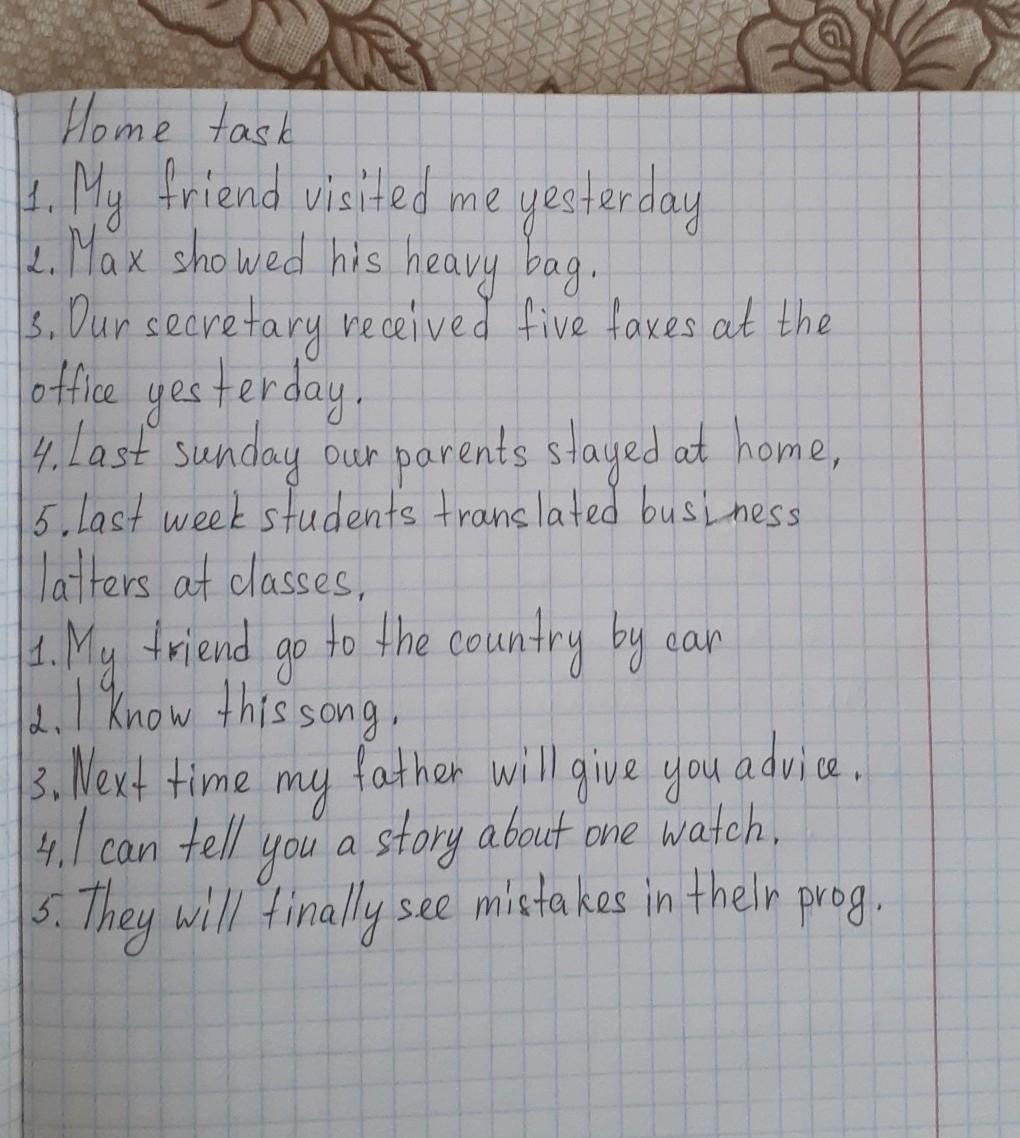 Home task
1. My friend visited me yesterday
2. Max showed his heavy bag.
3. Our secretary received five faxes at the
office yesterday.
4. Last sunday our parents stayed at home,
5. Last week students translated business
latters at classes,
1. My friend go to the country by car
2. I know this song.
3. Next time my father will give you advice.
4. I can tell you a story about one watch.
5. They will finally see mistakes in their prog.